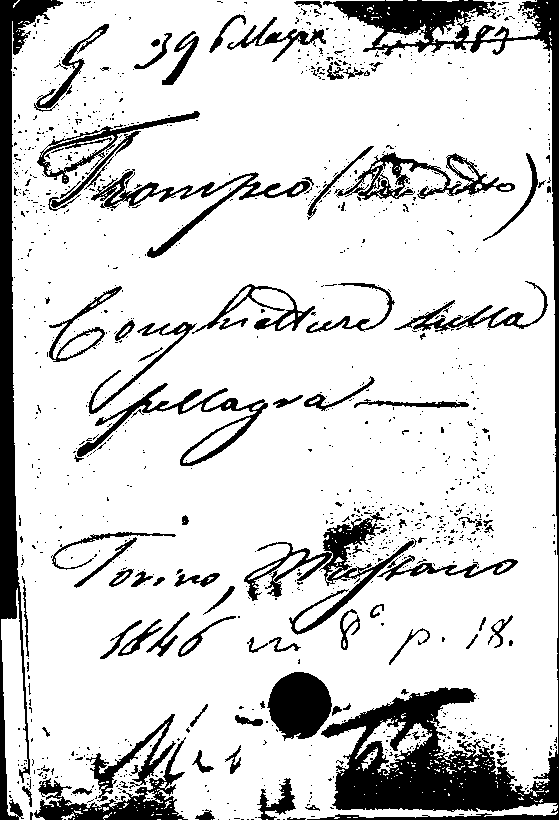 G. 39 Pellagra
Trompeo (Benedetto)
Conghietture sulla
pellagra —
Torino, Mussano
1846 in 8º p. 18.